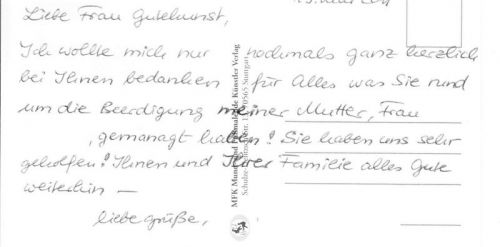 Liebe Frau Gutekunst,
Ich wollte mich nur nochmals ganz herzlich
bei Ihnen bedanken für Alles was Sie rund
um die Beerdigung meiner Mutter, Frau
, gemanagt haben! Sie haben uns sehr
geholfen! Ihnen und Ihrer Familie alles Gute
weiterhin —
liebe Grüße,
MFK Mund- und Fußmalende Künstler Verlag
70565 Stuttgart